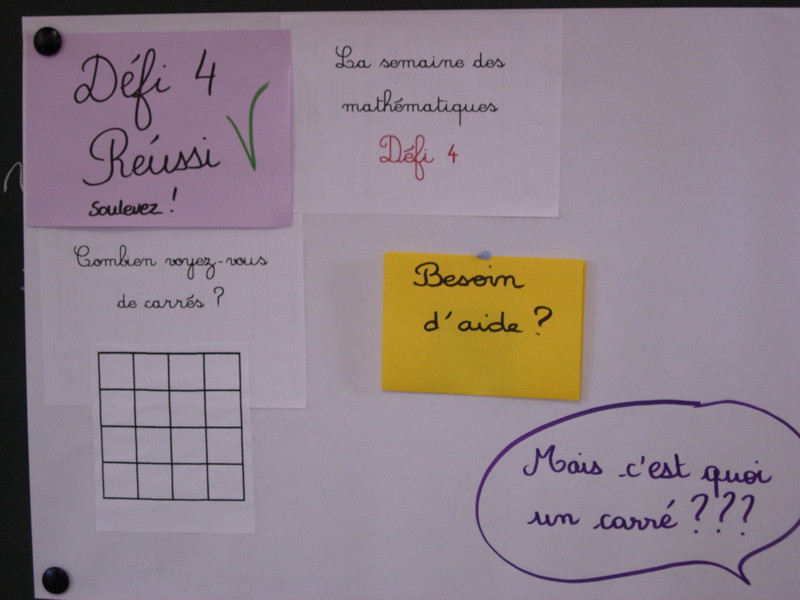 Défi 4
Réussi
Soulevez !
La semaine des
mathématiques
Défi 4
Combien voyez-vous
de carrés ?
Besoin
d'aide ?
Mais c'est quoi
un carré ???